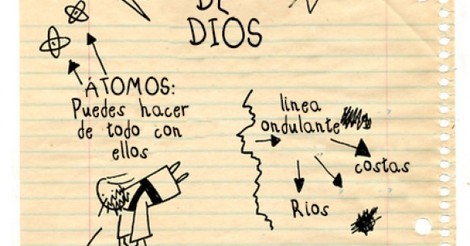 DE
DIOS
ÁTOMOS:
Puedes hacer
de todo con
ellos
línea
ondulante
costas
Ríos